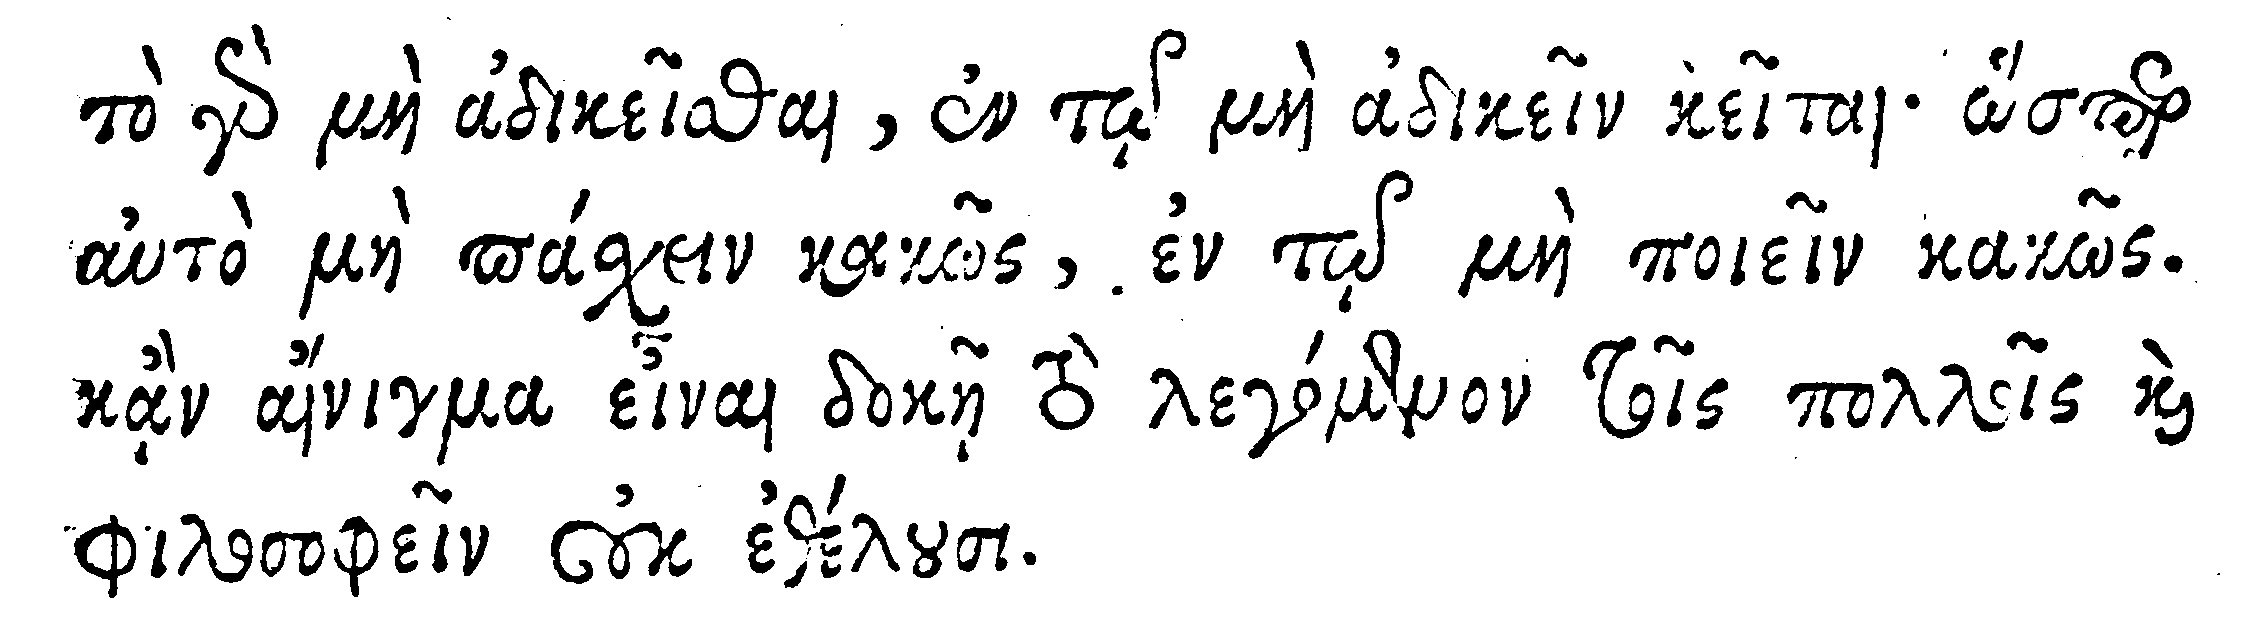 τὸ γὰρ μὴ ἀδικεῖσθαι, ἐν τῷ μὴ ἀδικεῖν κεῖται· ὥσπερ
αὐτὸ μὴ πάσχειν κακῶς, ἐν τῷ μὴ ποιεῖν κακῶς.
κᾂν αἴνιγμα εἶναι δοκῇ τὸ λεγόμενον τοῖς πολλοῖς καὶ
φιλοσοφεῖν οὐκ ἐθέλουσι.